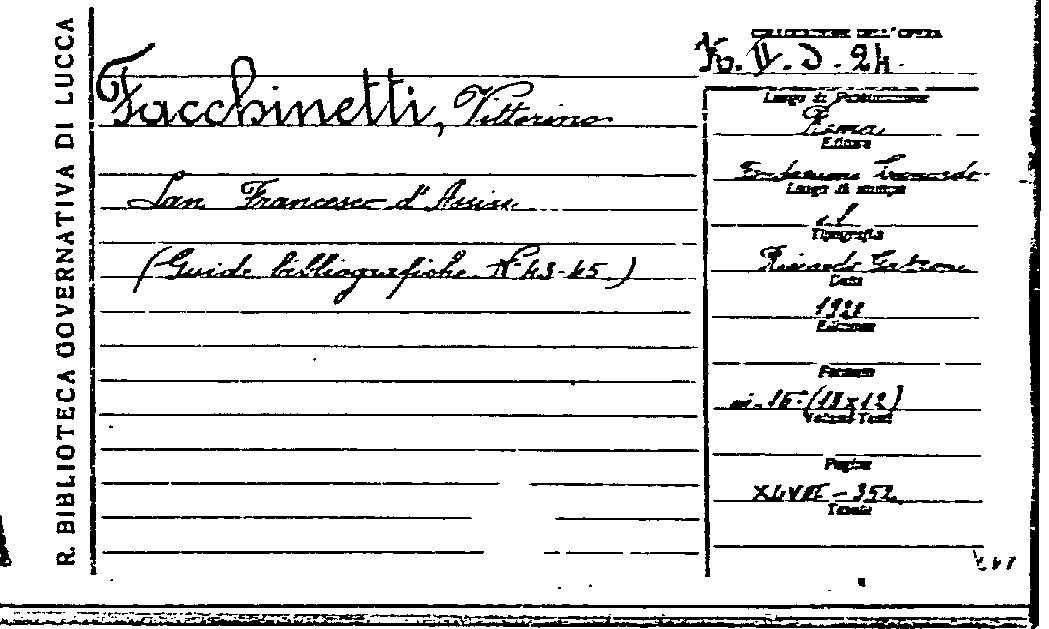 R. BIBLIOTECA GOVERNATIVA DI LUCCA
COLLOCAZIONE DELL'OPERA
Facchinetti, Vittorino
San Francesco d'Assisi
(Guide bibliografiche N. 43-45.)
Luogo di Pubblicazione
Roma
Editore
Fondazione Leonardo
Luogo di stampa
Tipografia
Riccardo Garroni
Data
Edizione
Formato
in-16° (18x12)
Volumi Tomi
Pagine
XLVIII - 352
Tavole